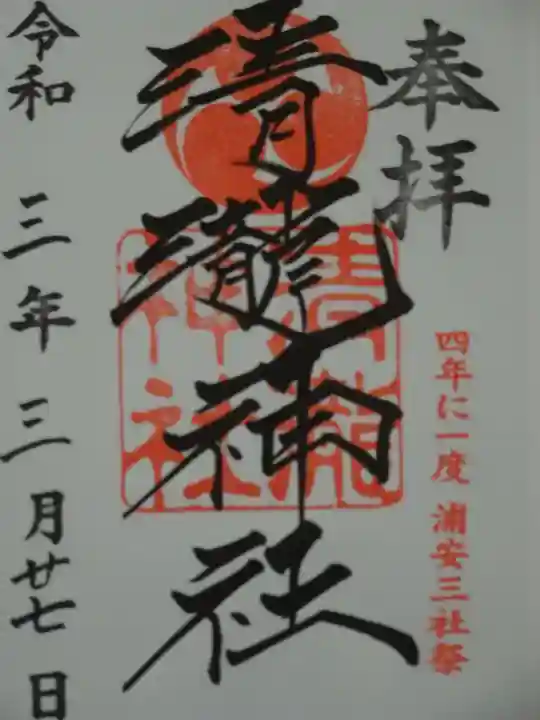 奉拝
四年に一度 浦安三社祭
清瀧神社
清瀧神社
令和 三年 三月廿七日